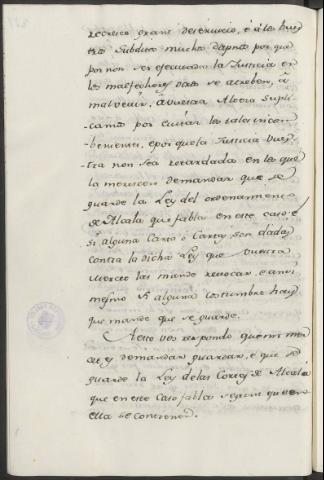 recrece grand deservicio, é á los vues
tros subditos mucho dapno por que
por non ser executada la Justicia en
los malfechores otros se atreben, á
mal vevir, á vuestra Alteza supli
camos por evitar los tales incon-
-benientes, e por que la Justicia vues
tra non sea retardada en los que
la merescen demandar que se
guarde la Ley del ordenamiento
de Alcala que fabla en este caso é
si alguna Carta ó Cartas son dadas
contra la dicha Ley que vuestra
Merced las mande revocar, e ansi
mesmo si alguna costumbre hay
que mande que se guarde.
A esto vos respondo que mi mer
ced es demandar guardar, é que se
guarde la Ley delas Cortes de Alcalá
que en este Caso fabla segun que en
ella se contiene.